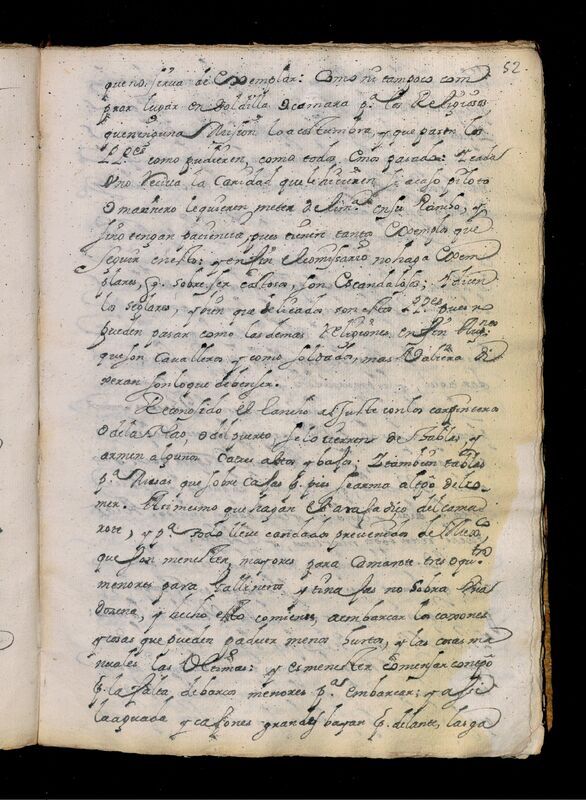 52.
que no sirva de Exemplar: Como ni tampoco com
prar lugar en toldilla o camara pª. los Religiosos
que ninguna Mision lo acostumbra, y que pasen los
PP.es como pudieren, como todos Emos pasado: y cada
Uno reciva la Caridad que le hicieren si acaso piloto
o marinero le quieren meter de en su Rancho, y
sino tengan paciencia, pues tienen tanto Exemplo que
seguir en esto: y en fin el comisario no haga Exem
plares, q. sobre ser costosos, son Escandalosos: y dicen
los seglares, que delicados son estos PP.es pues no
pueden pasar como las demas Religiones, en fin
que son Cavalleros y como soldados, mas valiera di
xeran son lo que deben ser.
Reconosido el Rancho ajuste con los carpintero
o de la Nao, o del puerto, se lo cierren de tablas, y
armen algunos Catres altos y bajos; y tambien tablas
pª. Mesas que sobre Caxas q. pies se arma algo de co
mer. Asimismo que hagan del cama
rote, y pª. todo lleve candados prevenidos de Mexco.
que son menester, mayores para Camarote tres o qutro
menores para Gallineros y una no sobra
dosena, y hecho esto comience a embarcar los caxones
y cosas que pueden padecer menos hurtos, y las cosas ma
nuales las Ultimas: y es menester comensar con tpo
p. la falta de barcos menores pª. Embarcar; y assi
la aguada y caxones grandes bayan p. delante, las ga